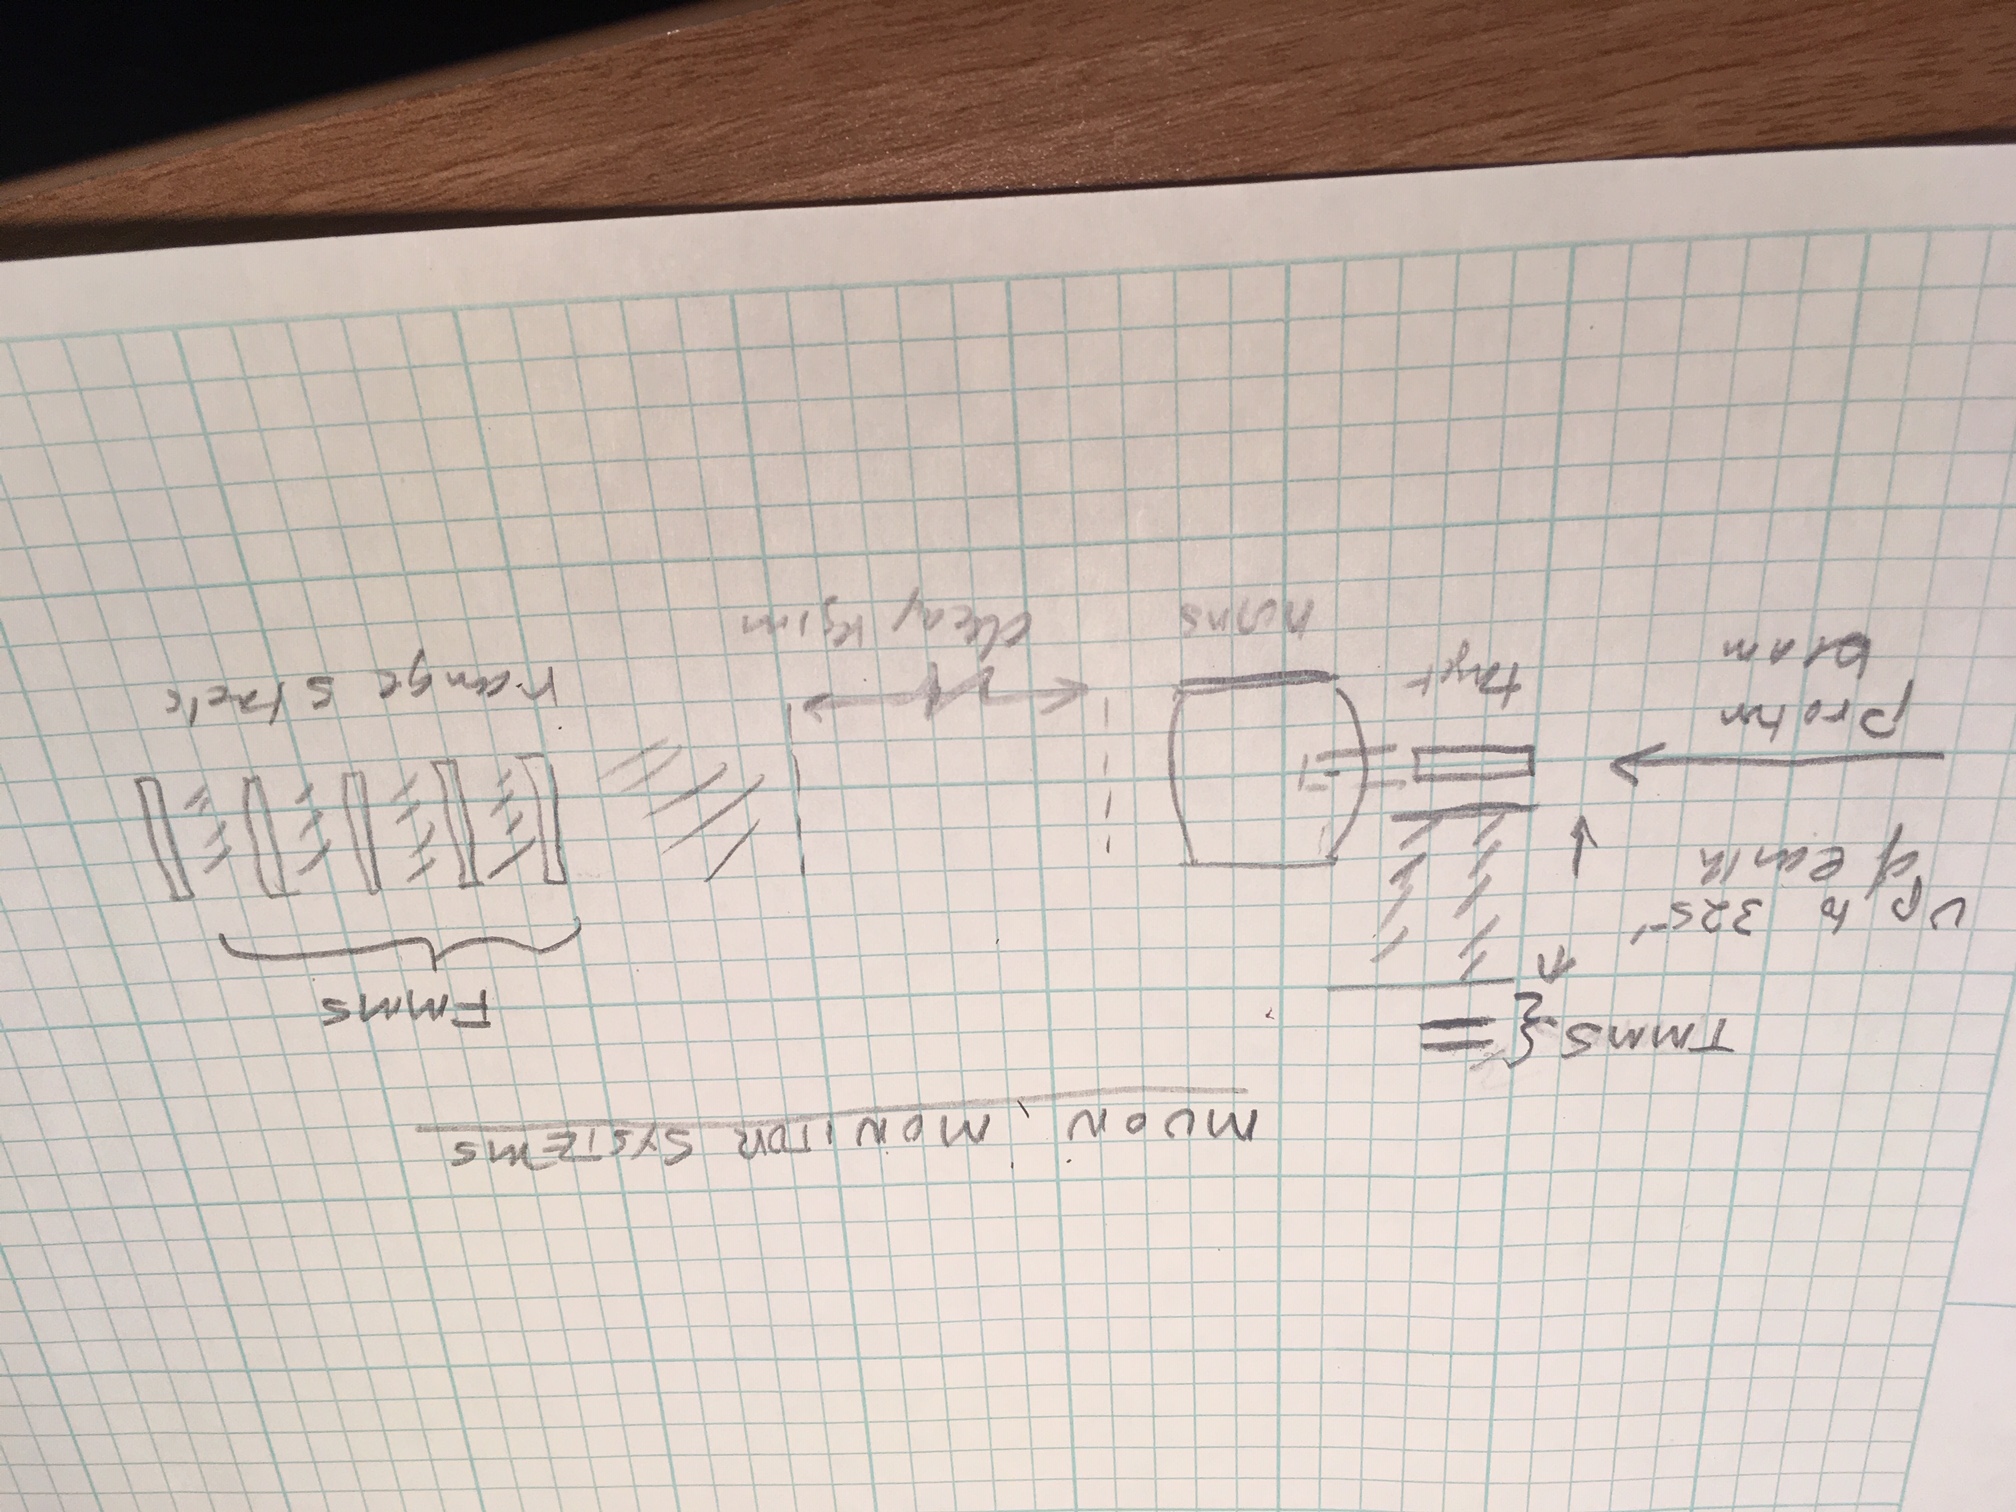 MUON MONITOR SYSTEMS
TMMS
FMMS
up to 325-1
of earth
proton
beam
target
horns
decay region
range stack